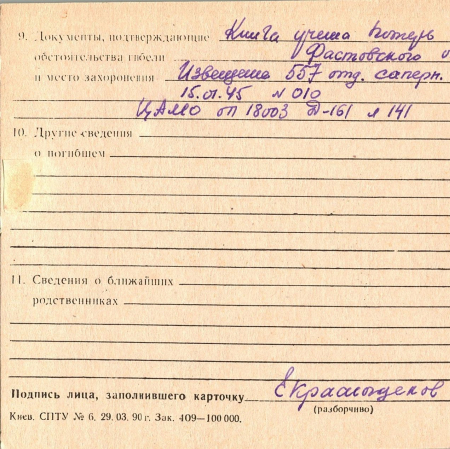 9. Документы, подтверждающие Книга учета потерь
обстоятельства гибели Фастовского
и место захоронения Извещение 557 отд. саперн.
15.01.45 № 010
ЦАМО оп 18003 Д-161 л 141
10. Другие сведения
о погибшем
11. Сведения о ближайших
родственниках
Подпись лица, заполнившего карточку
(разборчиво)
Киев. СПТУ № 6. 29. 03. 90 г. Зак. 409—100 000.